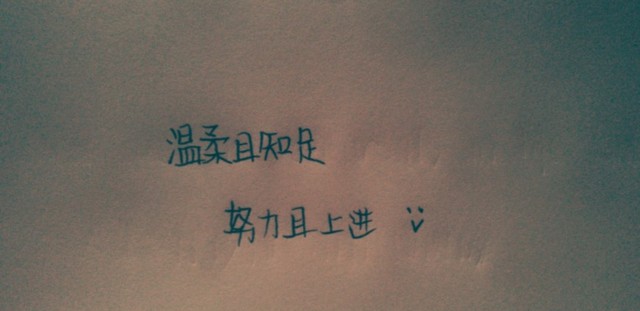 温柔且知足
努力且上进 :)